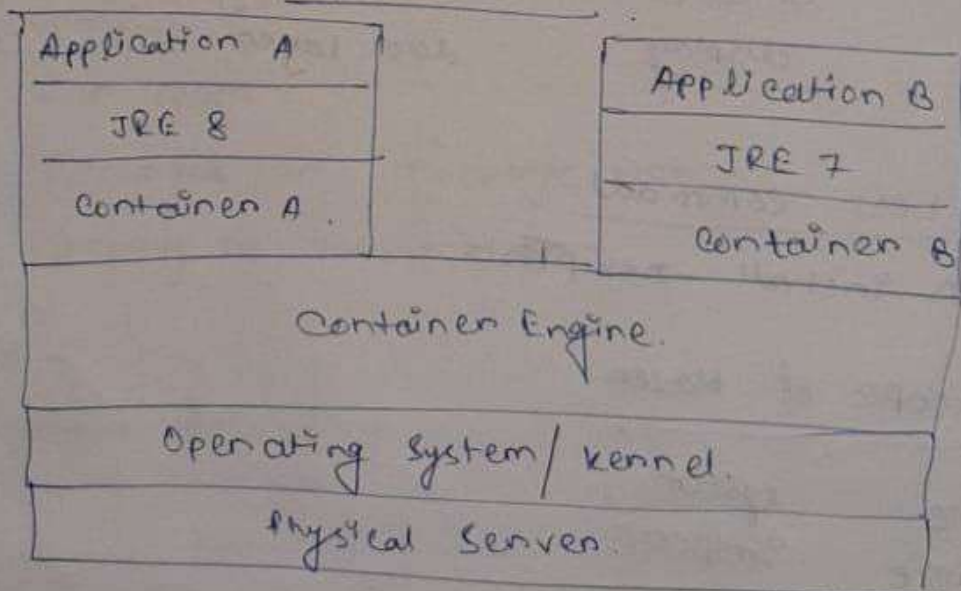 Application A
JRE 8
Container A.
Application B
JRE 7
Container B
Container Engine.
Operating System / Kernel.
Physical Server.